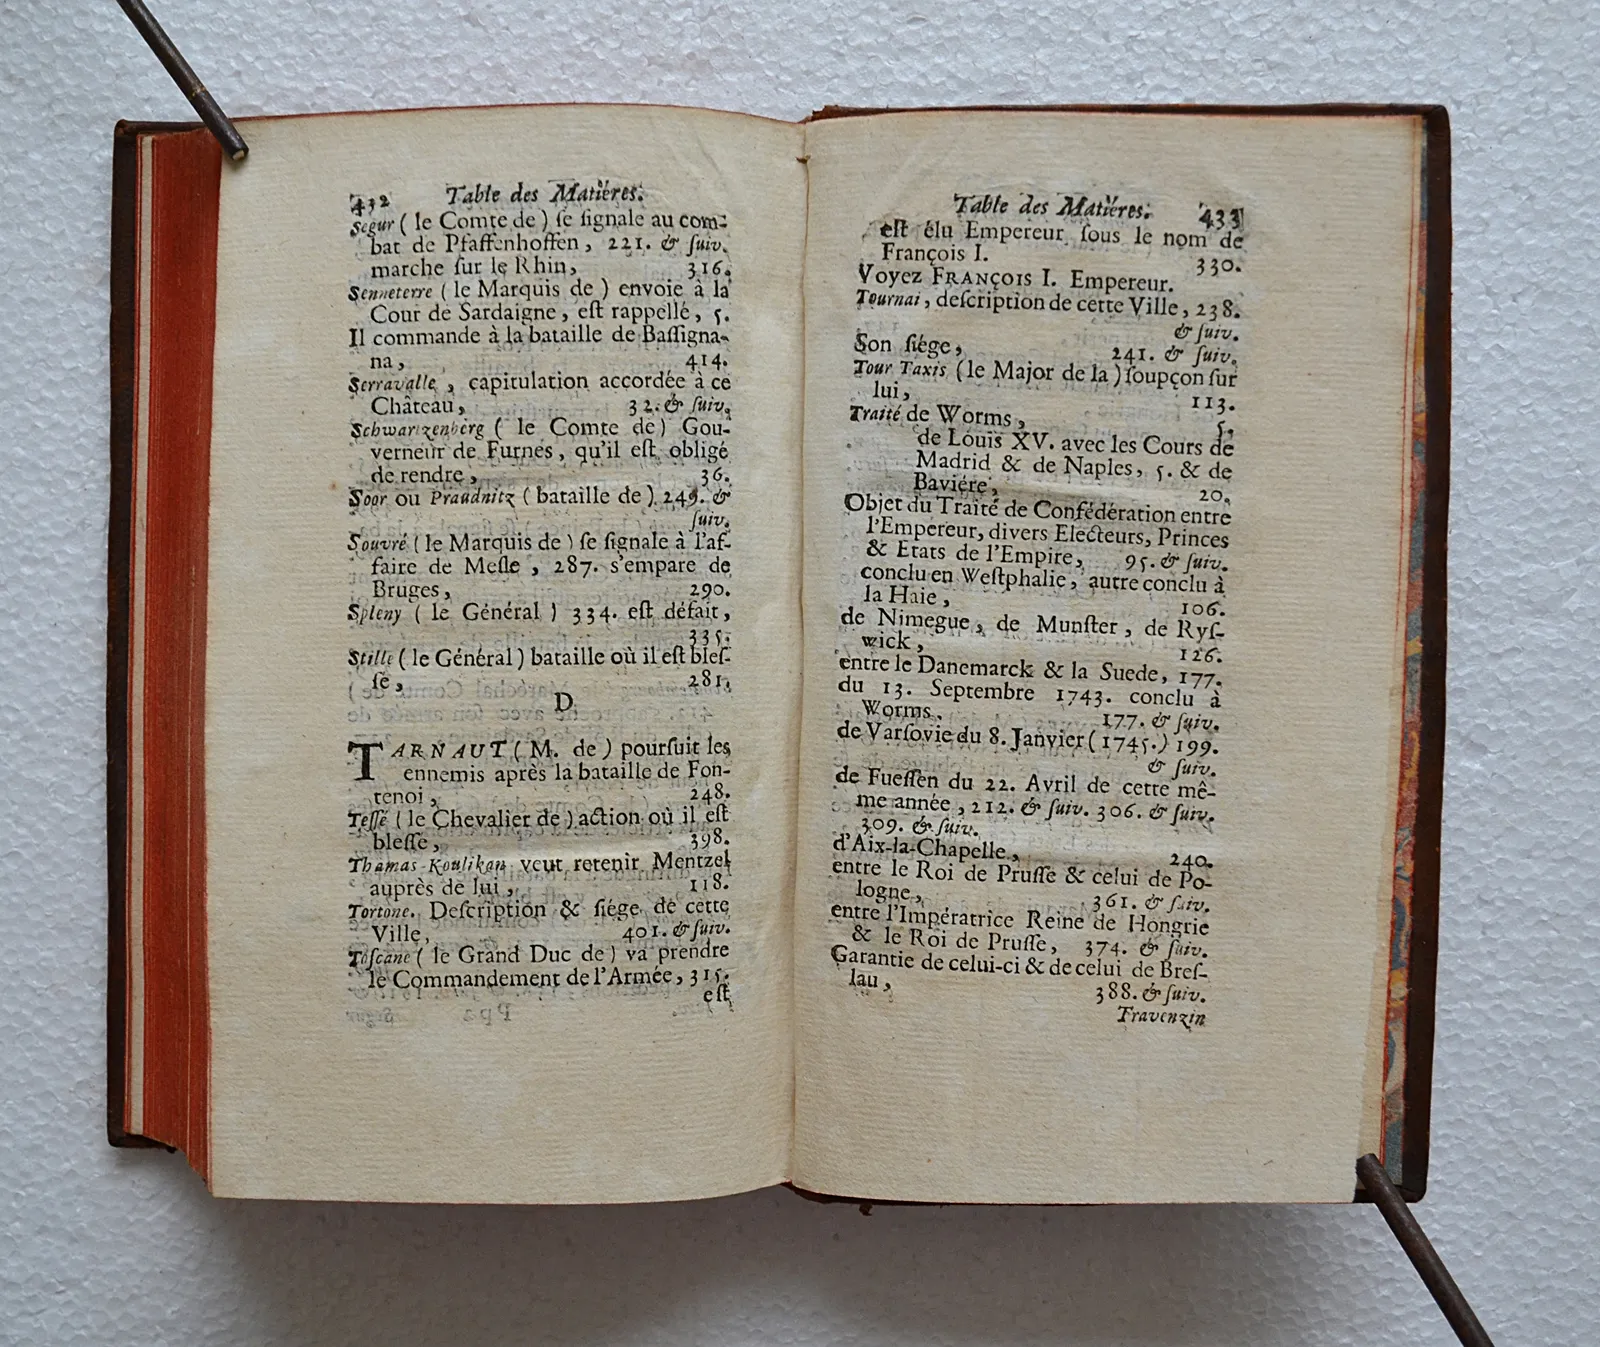 432 Table des Matiéres.
Segur ( le Comte de ) ſe ſignale au com-
bat de Pfaffenhoffen, 221. & ſuiv.
marche ſur le Rhin, 316.
Senneterre ( le Marquis de ) envoie à la
Cour de Sardaigne, eſt rappellé, 5.
Il commande à la bataille de Baſſigna-
na, 414.
Serravalle, capitulation accordée à ce
Château, 32. & ſuiv.
Schwartzenberg ( le Comte de ) Gou-
verneur de Furnes, qu'il eſt obligé
de rendre, 36.
Soor ou Praudnitz ( bataille de ) 249. &
ſuiv.
Souvré ( le Marquis de ) ſe ſignale à l'af-
faire de Meſle, 287. s'empare de
Bruges, 290.
Spleny ( le Général ) 334. eſt défait,
335.
Stille ( le Général ) bataille où il eſt bleſ-
ſe, 281.
D
TARNAUT ( M. de ) pourſuit les
ennemis après la bataille de Fon-
tenoi, 248.
Teſſé ( le Chevalier de ) action où il eſt
bleſſe, 398.
Thamas-Koulikan veut retenir Mentzel
auprès de lui, 118.
Tortone. Deſcription & ſiége de cette
Ville, 401. & ſuiv.
Toſcane ( le Grand Duc de ) va prendre
le Commandement de l'Armée, 315.
eſt
Table des Matiéres. 433
eſt élu Empereur ſous le nom de
François I. 330.
Voyez FRANÇOIS I. Empereur.
Tournai, deſcription de cette Ville, 238.
& ſuiv.
Son ſiége, 241. & ſuiv.
Tour Taxis ( le Major de la ) ſoupçon ſur
lui, 113.
Traité de Worms, 5.
de Louis XV. avec les Cours de
Madrid & de Naples, 5. & de
Baviére, 20.
Objet du Traité de Confédération entre
l'Empereur, divers Electeurs, Princes
& Etats de l'Empire, 95. & ſuiv.
conclu en Weſtphalie, autre conclu à
la Haie, 106.
de Nimegue, de Munſter, de Ryſ-
wick, 126.
entre le Danemarck & la Suede, 177.
du 13. Septembre 1743. conclu à
Worms. 177. & ſuiv.
de Varſovie du 8. Janvier ( 1745. ) 199.
& ſuiv.
de Fueſſen du 22. Avril de cette mê-
me année, 212. & ſuiv. 306. & ſuiv.
309. & ſuiv.
d'Aix-la-Chapelle, 240.
entre le Roi de Pruſſe & celui de Po-
logne, 361. & ſuiv.
entre l'Impératrice Reine de Hongrie
& le Roi de Pruſſe, 374. & ſuiv.
Garantie de celui-ci & de celui de Breſ-
lau, 388. & ſuiv.
Travenzin